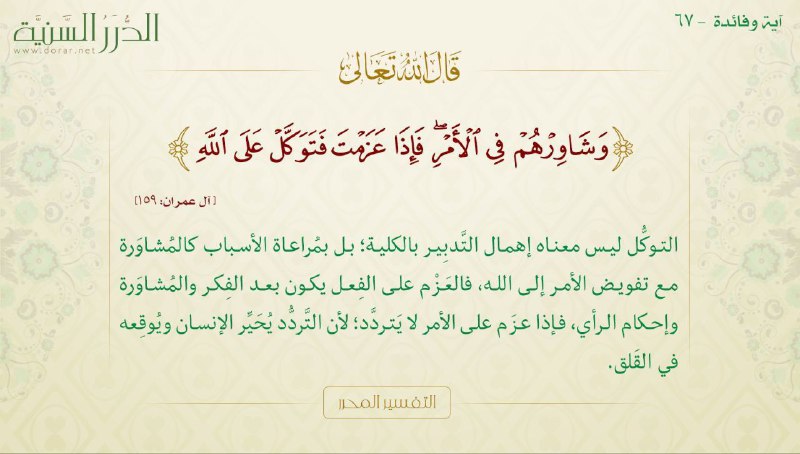 آية وفائدة - ٦٧
الدُّرَرُ السَّنِيَّة
www.dorar.net
قَالَ اللهُ تَعَالَى
﴿وَشَاوِرْهُمْ فِي الْأَمْرِ ۖ فَإِذَا عَزَمْتَ فَتَوَكَّلْ عَلَى اللَّهِ﴾
[آل عمران: ١٥٩]
التوكُّل ليس معناه إهمال التَّدبِير بالكلية؛ بل بمُراعاة الأسباب كالمُشاوَرة
مع تفويض الأمر إلى الله، فالعَزْم على الفِعل يكون بعد الفِكر والمُشاوَرة
وإحكام الرأي، فإذا عزَم على الأمر لا يَتردَّد؛ لأن التَّردُّد يُحَيِّر الإنسان ويُوقِعه
في القَلق.
التفسير المحرر